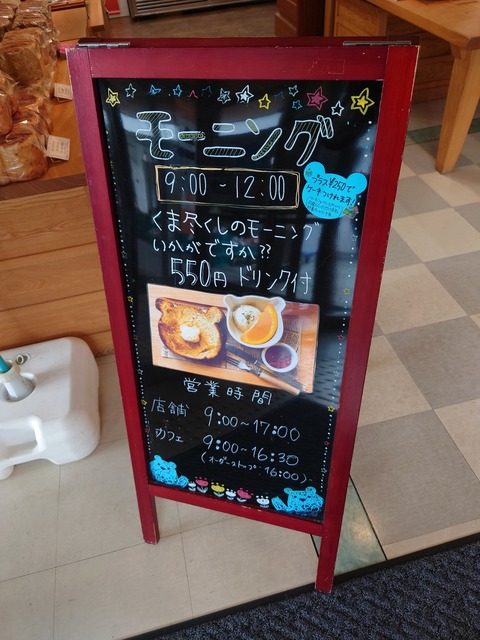 モーニング
9:00 - 12:00
プラス¥250で
ケーキつけれます!
くま尽くしのモーニング
いかがですか??
550円 ドリンク付
営業時間
店舗 9:00~17:00
カフェ 9:00~16:30
(オーダーストップ 16:00)